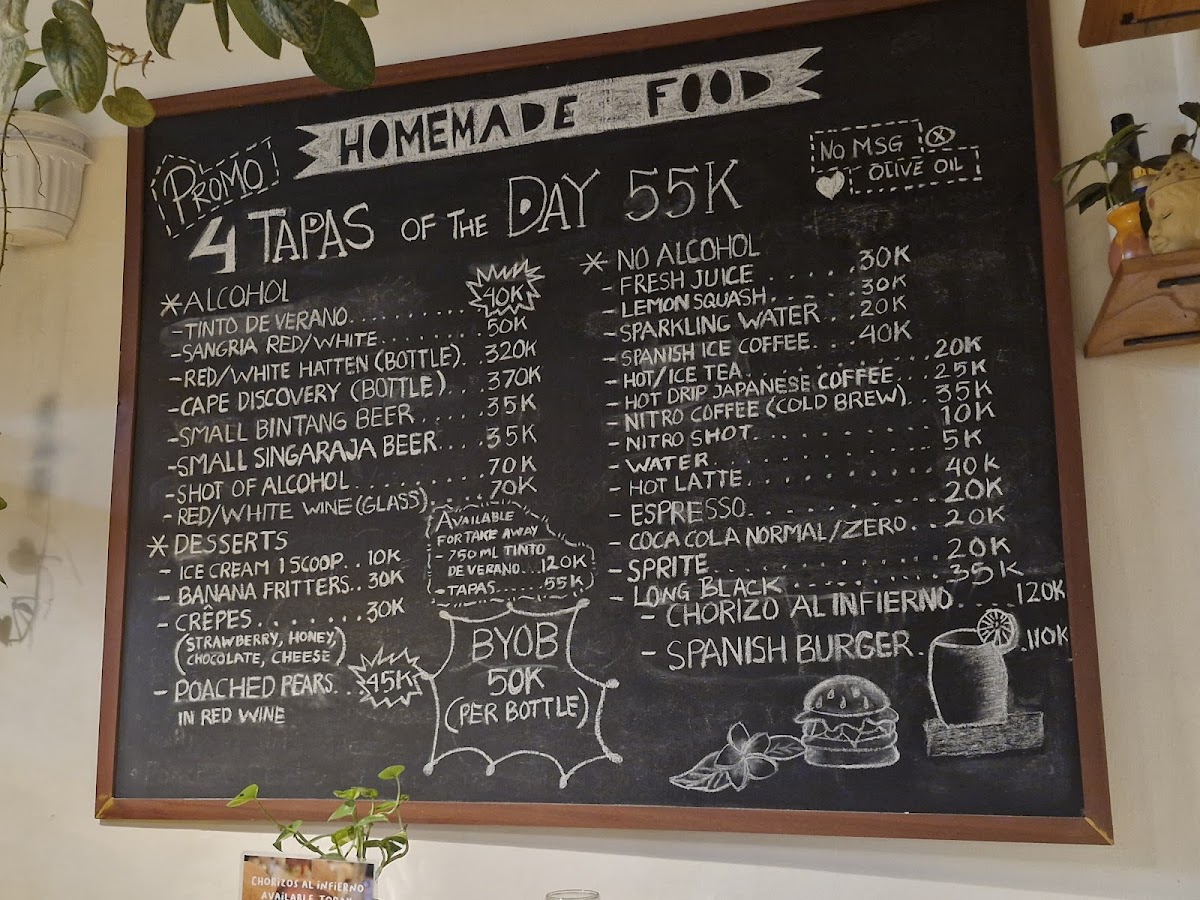 HOMEMADE FOOD
PROMO
NO MSG
OLIVE OIL
4 TAPAS OF THE DAY 55K
*ALCOHOL
-TINTO DE VERANO.......... 40K
-SANGRIA RED/WHITE......... 50K
-RED/WHITE HATTEN (BOTTLE). .320K
-CAPE DISCOVERY (BOTTLE)... 370K
-SMALL BINTANG BEER...... 35K
-SMALL SINGARAJA BEER.... 35K
-SHOT OF ALCOHOL.......... 70K
-RED/WHITE WINE (GLASS)..... 70K
*DESSERTS
- ICE CREAM 1 SCOOP.. 10K
- BANANA FRITTERS.. 30K
- CRÊPES....... 30K
(STRAWBERRY, HONEY,
CHOCOLATE, CHEESE)
- POACHED PEARS... 45K
IN RED WINE
AVAILABLE
FOR TAKE AWAY
- 750 ML TINTO
DE VERANO... 120K
-TAPAS...... 55K
BYOB
50K
(PER BOTTLE)
* NO ALCOHOL
- FRESH JUICE...... 30K
- LEMON SQUASH...... 30K
- SPARKLING WATER 20K
- SPANISH ICE COFFEE... 40K
- HOT/ICE TEA............ 20K
- HOT DRIP JAPANESE COFFEE... 25K
- NITRO COFFEE (COLD BREW).. 35K
- NITRO SHOT........... 10K
- WATER............. 5K
- HOT LATTE........... 40K
- ESPRESSO........... 20K
- COCA COLA NORMAL/ZERO.. 20K
- SPRITE............ 20K
- LONG BLACK......... 35K
- CHORIZO AL INFIERNO.... 120K
- SPANISH BURGER. .110K
CHORIZOS AL INFIERNO
AVAILABLE TODAY